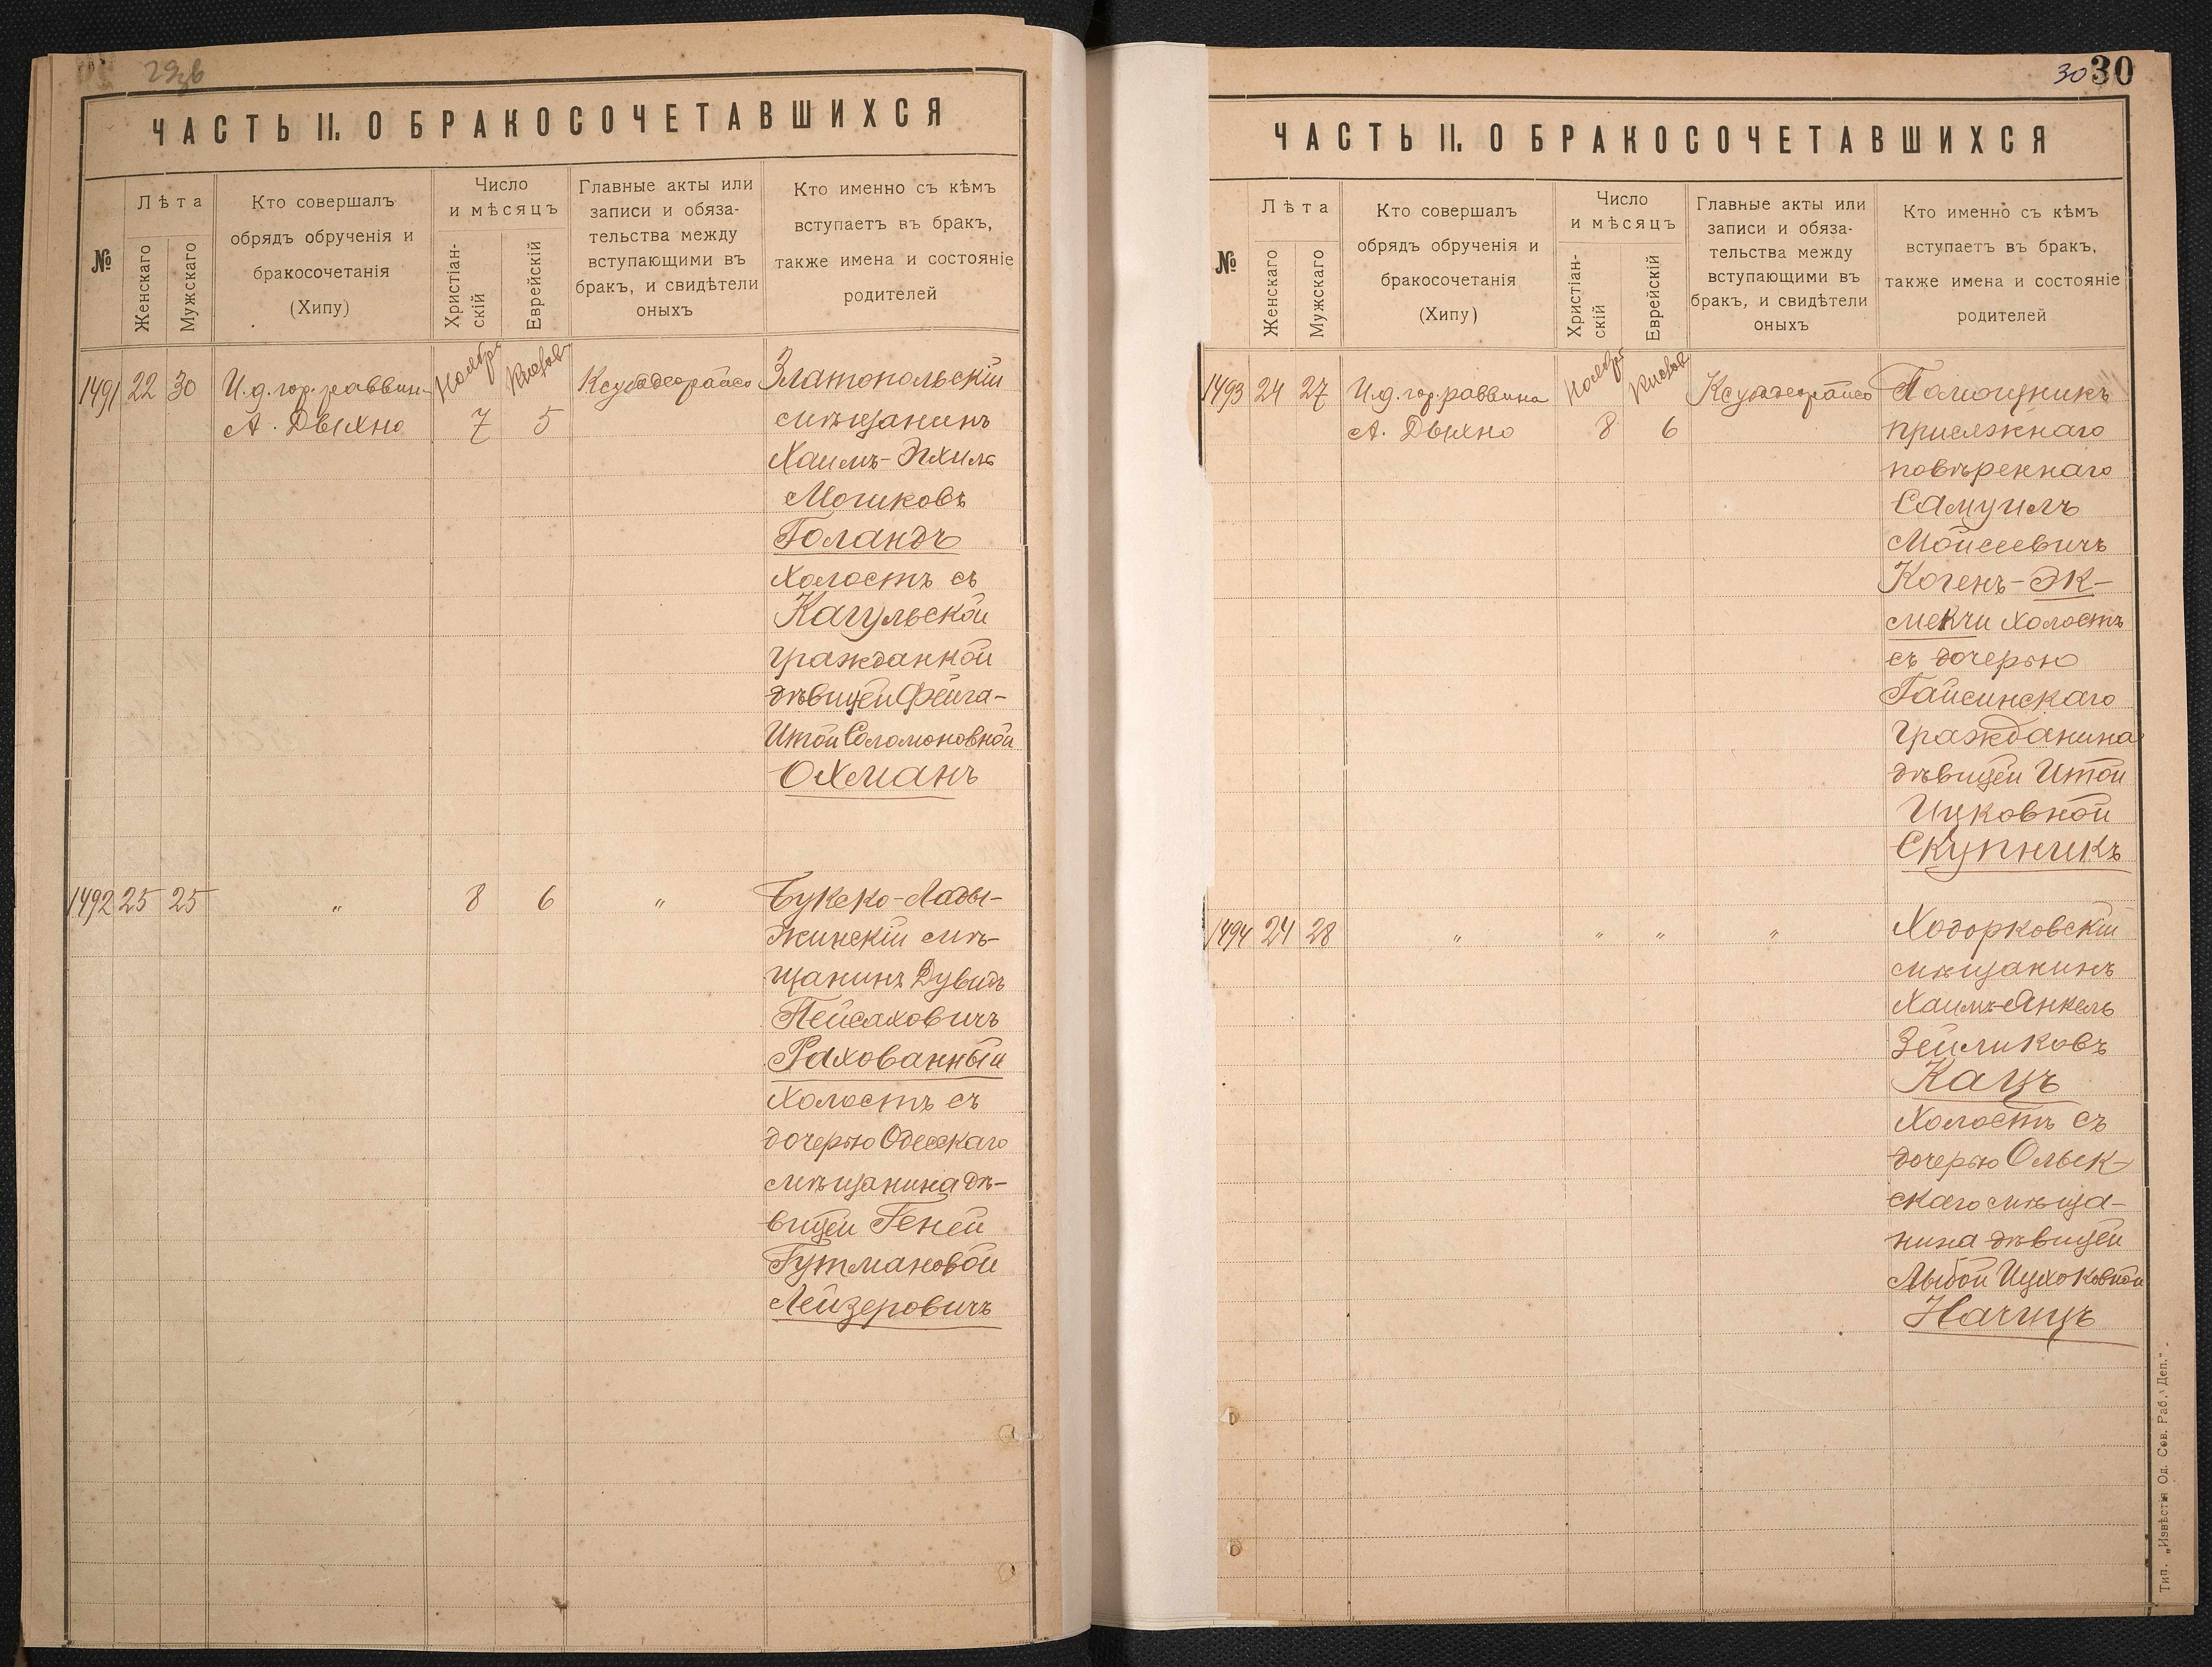 29зв
ЧАСТЬ II. О БРАКОСОЧЕТАВШИХСЯ
№
Лѣта
Женскаго
Мужскаго
Кто совершалъ
обрядъ обрученія и
бракосочетанія
(Хипу)
Число
и мѣсяцъ
Христіан-
скій
Еврейскій
Главные акты или
записи и обяза-
тельства между
вступающими въ
бракъ, и свидѣтели
оныхъ
Кто именно съ кѣмъ
вступаетъ въ бракъ,
также имена и состояніе
родителей
1491 22 30 И.д. гор. раввин. Ноябр. Кислов Ксубадеорайсо Златопольскій
А. Двихно 7 5 мѣщанинъ
Хаимъ-Эхиль
Мошковъ
Голандъ
холостъ съ
Кагульской
гражданкой
дѣвицей Фейга-
Итой Соломоновной
Охманъ
1492 25 25 " 8 6 " Букско-Лады-
жинскій мѣ-
щанинъ Дувидъ
Пейсаховичъ
Рахованный
холостъ съ
дочерью Одесскаго
мѣщанина дѣ-
вицей Геней
Гутмановой
Лейзеровичъ
30 30
ЧАСТЬ II. О БРАКОСОЧЕТАВШИХСЯ
№
Лѣта
Женскаго
Мужскаго
Кто совершалъ
обрядъ обрученія и
бракосочетанія
(Хипу)
Число
и мѣсяцъ
Христіан-
скій
Еврейскій
Главные акты или
записи и обяза-
тельства между
вступающими въ
бракъ, и свидѣтели
оныхъ
Кто именно съ кѣмъ
вступаетъ въ бракъ,
также имена и состояніе
родителей
1493 24 27 И.д. гор. раввина Ноябр Кислов Ксубадеорайсо Помощникъ
А. Двихно 8 6 присяжнаго
повѣреннаго
Самуилъ
Мойсеевичъ
Когенъ-Эк-
мекчи холостъ
съ дочерью
Гайсинскаго
гражданина
дѣвицей Итой
Ицковной
Скупникъ
1494 24 28 " " " " Ходорковскій
мѣщанинъ
Хаимъ-Янкель
Зейликовъ
Кацъ
холостъ съ
дочерью Олык-
скаго мѣща-
нина дѣвицей
Лыбой Ицхоковной
Начицъ
Тип. „Извѣстія Од. Сов. Раб. Деп."